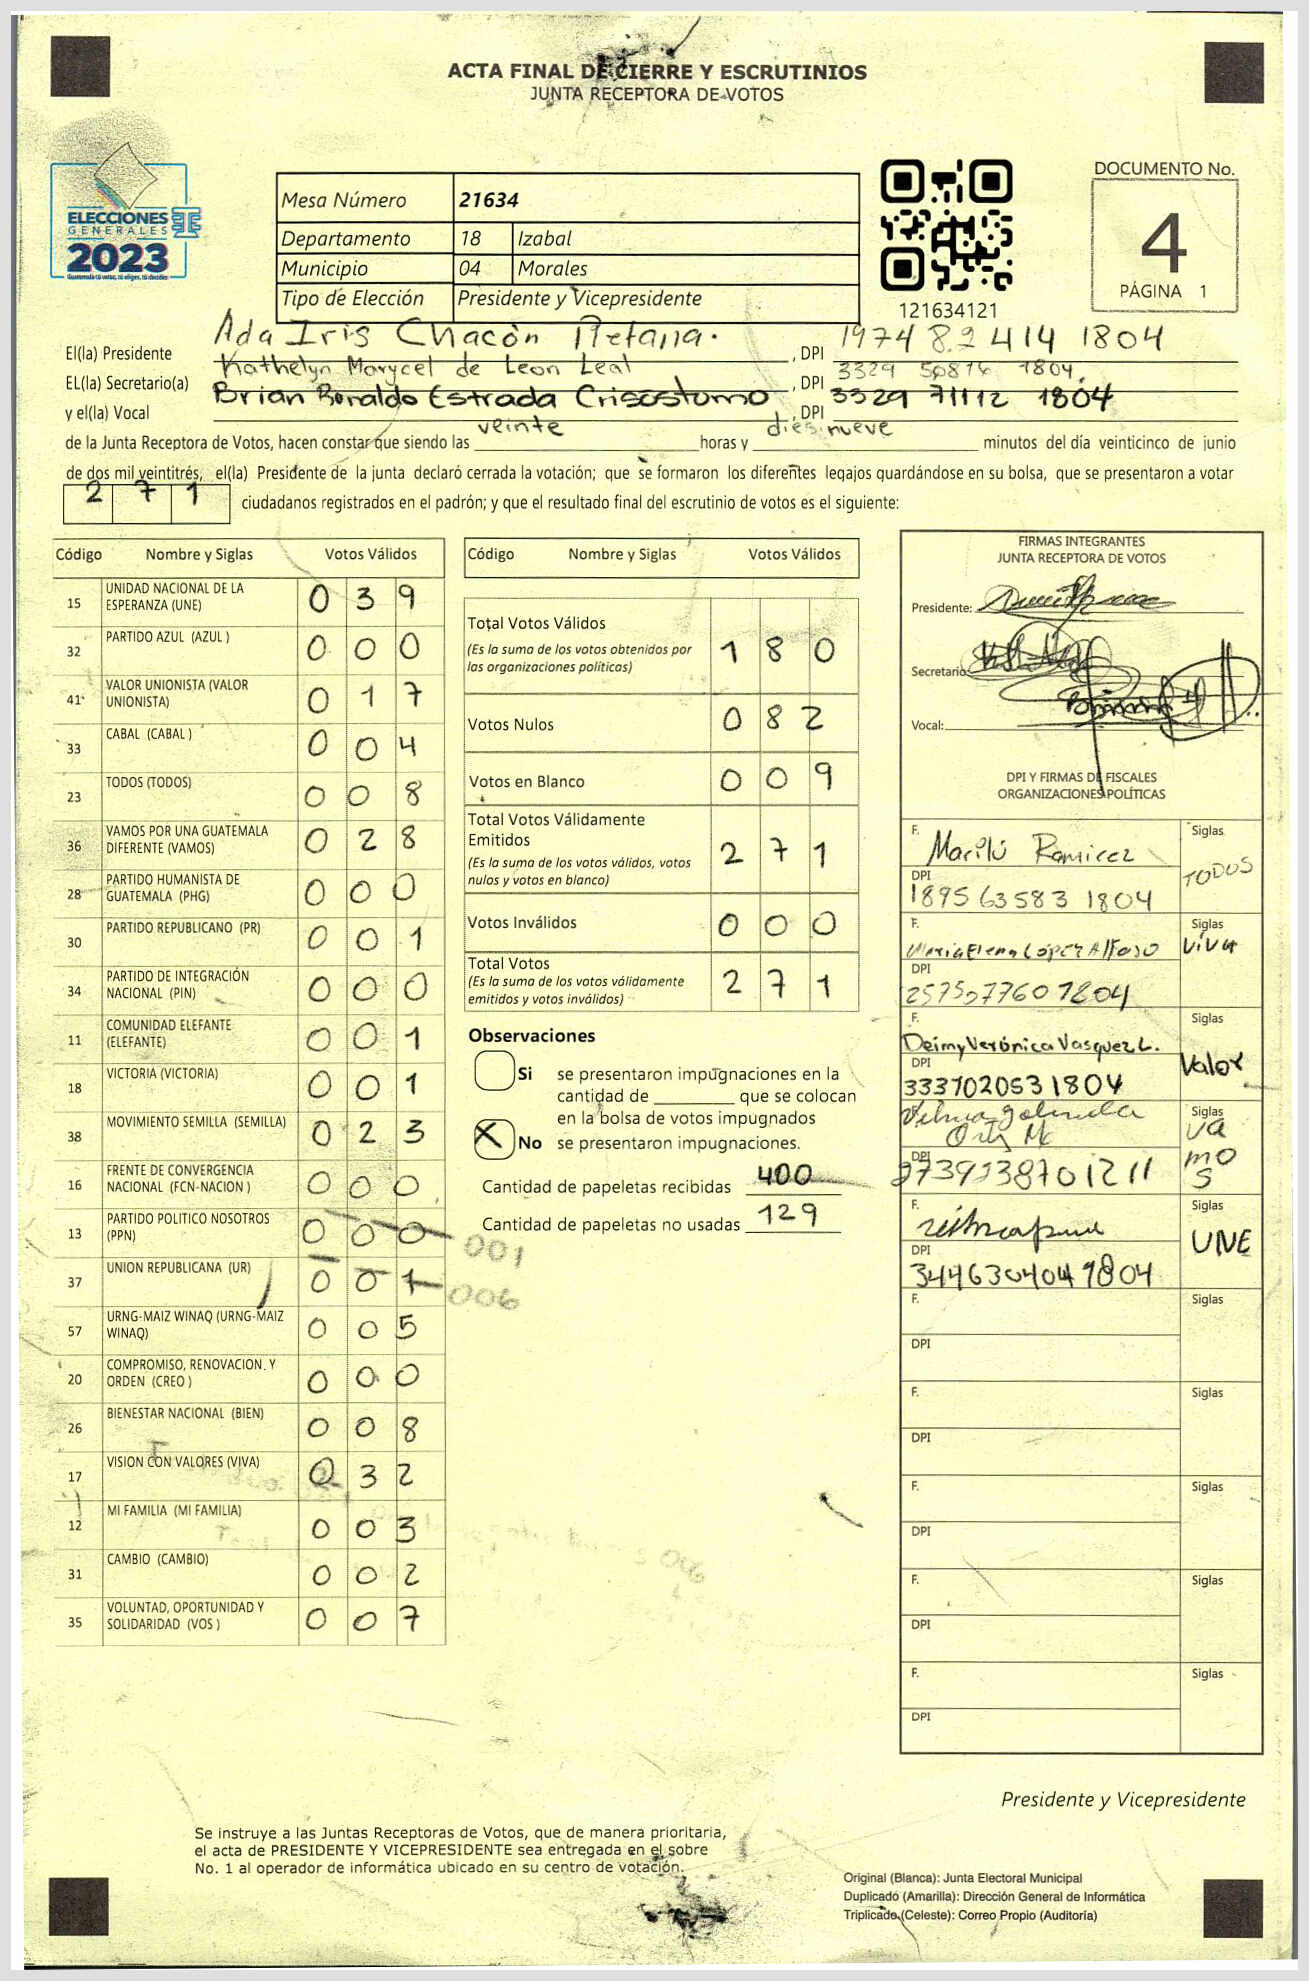 ACTA FINAL DE CIERRE Y ESCRUTINIOS
JUNTA RECEPTORA DE VOTOS
ELECCIONES
GENERALES
2023
Guatemala tú votas, tú eliges, tú decides
Mesa Número 21634
Departamento 18 Izabal
Municipio 04 Morales
Tipo de Elección Presidente y Vicepresidente
121634121
DOCUMENTO No.
4
PÁGINA 1
El(la) Presidente Ada Iris Chacòn Retana. , DPI 1974 82414 1804
EL(la) Secretario(a) Kathelyn Marycel de Leon Leal , DPI 3329 50816 1804.
y el(la) Vocal Brian Ronaldo Estrada Crisostomo , DPI 3329 71112 1804
de la Junta Receptora de Votos, hacen constar que siendo las veinte horas y diesinueve minutos del día veinticinco de junio
de dos mil veintitrés, el(la) Presidente de la junta declaró cerrada la votación; que se formaron los diferentes legajos guardándose en su bolsa, que se presentaron a votar
2 7 1 ciudadanos registrados en el padrón; y que el resultado final del escrutinio de votos es el siguiente:
Código Nombre y Siglas Votos Válidos
15 UNIDAD NACIONAL DE LA ESPERANZA (UNE) 0 3 9
32 PARTIDO AZUL (AZUL ) 0 0 0
41 VALOR UNIONISTA (VALOR UNIONISTA) 0 1 7
33 CABAL (CABAL ) 0 0 4
23 TODOS (TODOS) 0 0 8
36 VAMOS POR UNA GUATEMALA DIFERENTE (VAMOS) 0 2 8
28 PARTIDO HUMANISTA DE GUATEMALA (PHG) 0 0 0
30 PARTIDO REPUBLICANO (PR) 0 0 1
34 PARTIDO DE INTEGRACIÓN NACIONAL (PIN) 0 0 0
11 COMUNIDAD ELEFANTE (ELEFANTE) 0 0 1
18 VICTORIA (VICTORIA) 0 0 1
38 MOVIMIENTO SEMILLA (SEMILLA) 0 2 3
16 FRENTE DE CONVERGENCIA NACIONAL (FCN-NACION ) 0 0 0
13 PARTIDO POLITICO NOSOTROS (PPN) 0 0 0 001
37 UNION REPUBLICANA (UR) 0 0 1 006
57 URNG-MAIZ WINAQ (URNG-MAIZ WINAQ) 0 0 5
20 COMPROMISO, RENOVACION. Y ORDEN (CREO ) 0 0 0
26 BIENESTAR NACIONAL (BIEN) 0 0 8
17 VISION CON VALORES (VIVA) 0 3 2
12 MI FAMILIA (MI FAMILIA) 0 0 3
31 CAMBIO (CAMBIO) 0 0 2
35 VOLUNTAD, OPORTUNIDAD Y SOLIDARIDAD (VOS ) 0 0 7
Código Nombre y Siglas Votos Válidos
Total Votos Válidos
(Es la suma de los votos obtenidos por
las organizaciones políticas) 1 8 0
Votos Nulos 0 8 2
Votos en Blanco 0 0 9
Total Votos Válidamente
Emitidos
(Es la suma de los votos válidos, votos
nulos y votos en blanco) 2 7 1
Votos Inválidos 0 0 0
Total Votos
(Es la suma de los votos válidamente
emitidos y votos inválidos) 2 7 1
Observaciones
Si se presentaron impugnaciones en la
cantidad de ________ que se colocan
en la bolsa de votos impugnados
X No se presentaron impugnaciones.
Cantidad de papeletas recibidas 400
Cantidad de papeletas no usadas 129
FIRMAS INTEGRANTES
JUNTA RECEPTORA DE VOTOS
Presidente:
Secretario:
Vocal:
DPI Y FIRMAS DE FISCALES
ORGANIZACIONES POLÍTICAS
F. Marilú Ramirez Siglas TODOS
DPI 1895 63583 1804
F. Maria Elena López Alfaso Siglas VIVA
DPI 2575077601804
F. Deimy Verónica Vasquez L. Siglas Valor
DPI 3337020531804
Siglas VAMOS
DPI 2739138701211
F. Siglas UNE
DPI 3446304041804
F. Siglas
DPI
F. Siglas
DPI
F. Siglas
DPI
F. Siglas
DPI
F. Siglas
DPI
Presidente y Vicepresidente
Se instruye a las Juntas Receptoras de Votos, que de manera prioritaria,
el acta de PRESIDENTE Y VICEPRESIDENTE sea entregada en el sobre
No. 1 al operador de informática ubicado en su centro de votación.
Original (Blanca): Junta Electoral Municipal
Duplicado (Amarilla): Dirección General de Informática
Triplicado (Celeste): Correo Propio (Auditoría)